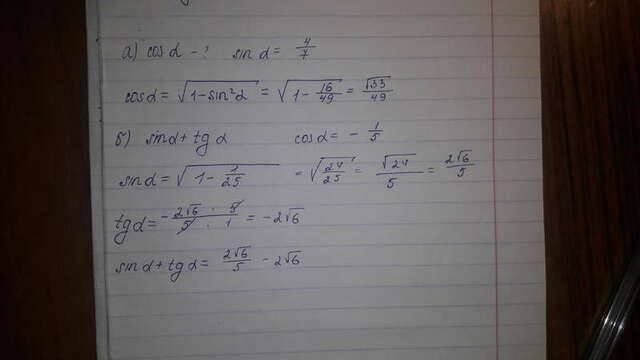 а) cos α - ? sin α = 4/7
cos α = √(1-sin²α) = √(1-16/49) = √33/49
б) sin α + tg α cos α = - 1/5
sin α = √(1 - 1/25) = √(24/25) = √24/5 = 2√6/5
tg α = - 2√6/5 · 5/1 = - 2√6
sin α + tg α = 2√6/5 - 2√6